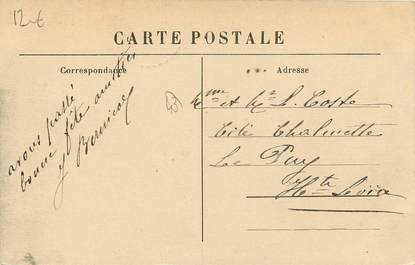 12-€
CARTE POSTALE
Correspondance
Adresse
avons passé
bonne fête
Mme et Mr L. Coste
Cité Chalmette
Le Puy
Hte Loire